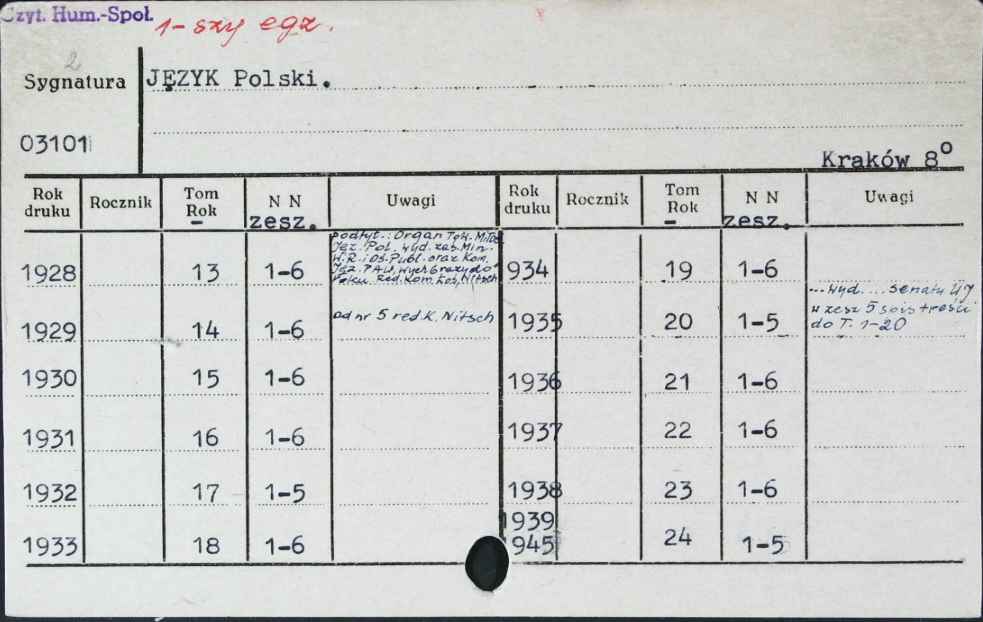 Czyt. Hum.-Społ.
1-szy egz.
2
Sygnatura JĘZYK Polski.
03101
Kraków 8°
Rok druku Rocznik Tom Rok N N zesz. Uwagi Rok druku Rocznik Tom Rok N N zesz. Uwagi
podtyt.: Organ Tow. Mił.
Jęz. Pol. wyd. zas. Min.
W.R. i Oś. Publ. oraz Kom.
Jęz. PAU, wych 6 razy do
roku Red. Kom Nitsch
1928 13 1-6 934 19 1-6
... wyd. ... senatu UJ
w zesz 5 spis treści
do T. 1-20
od nr 5 red. K. Nitsch
1929 14 1-6 1935 20 1-5
1930 15 1-6 1936 21 1-6
1931 16 1-6 1937 22 1-6
1932 17 1-5 1938 23 1-6
1939
1933 18 1-6 1945 24 1-5